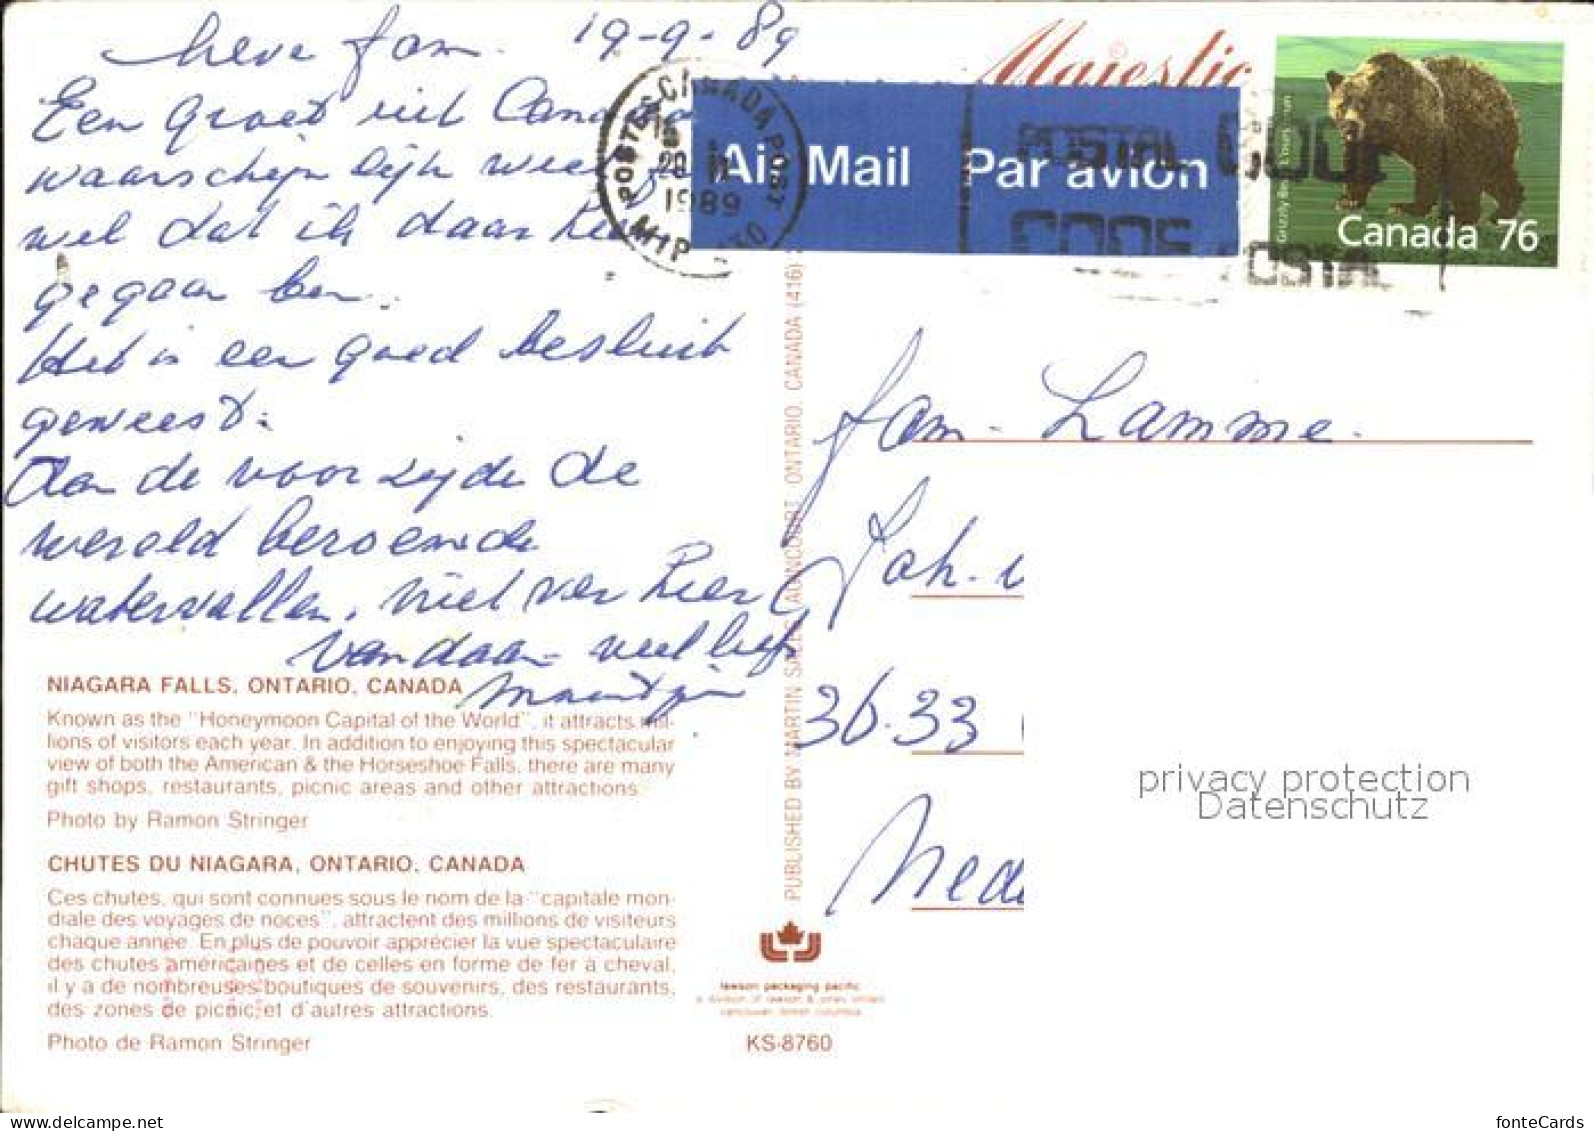 lieve fam. 19-9-89
Een groet uit Cana
waarschijnlijk wee
wel dat ik daar
gegaan ben.
Het is een goed besluit
geweest.
Aan de voorzijde de
wereld beroemde
watervallen, niet ver hier
vandaan veel liefs
Majestic
POSTES CANADA POST
20
1989
M1P
Air Mail Par avion
POSTAL CODE
CODE POSTAL
Canada 76
fam. Lamme.
Joh.
36.33
Ned
NIAGARA FALLS, ONTARIO, CANADA
Known as the "Honeymoon Capital of the World", it attracts mil-
lions of visitors each year. In addition to enjoying this spectacular
view of both the American & the Horseshoe Falls, there are many
gift shops, restaurants, picnic areas and other attractions.
Photo by Ramon Stringer
CHUTES DU NIAGARA, ONTARIO, CANADA
Ces chutes, qui sont connues sous le nom de la "capitale mon-
diale des voyages de noces", attractent des millions de visiteurs
chaque année. En plus de pouvoir apprécier la vue spectaculaire
des chutes américaines et de celles en forme de fer à cheval,
il y a de nombreuses boutiques de souvenirs, des restaurants,
des zones de picnic et d'autres attractions.
Photo de Ramon Stringer
PUBLISHED BY MARTIN SALES, AGINCOURT, ONTARIO, CANADA (416)
lawson packaging pacific
a division of lawson & jones limited
vancouver, british columbia
KS-8760
privacy protection
Datenschutz
www.delcampe.net
fonteCards